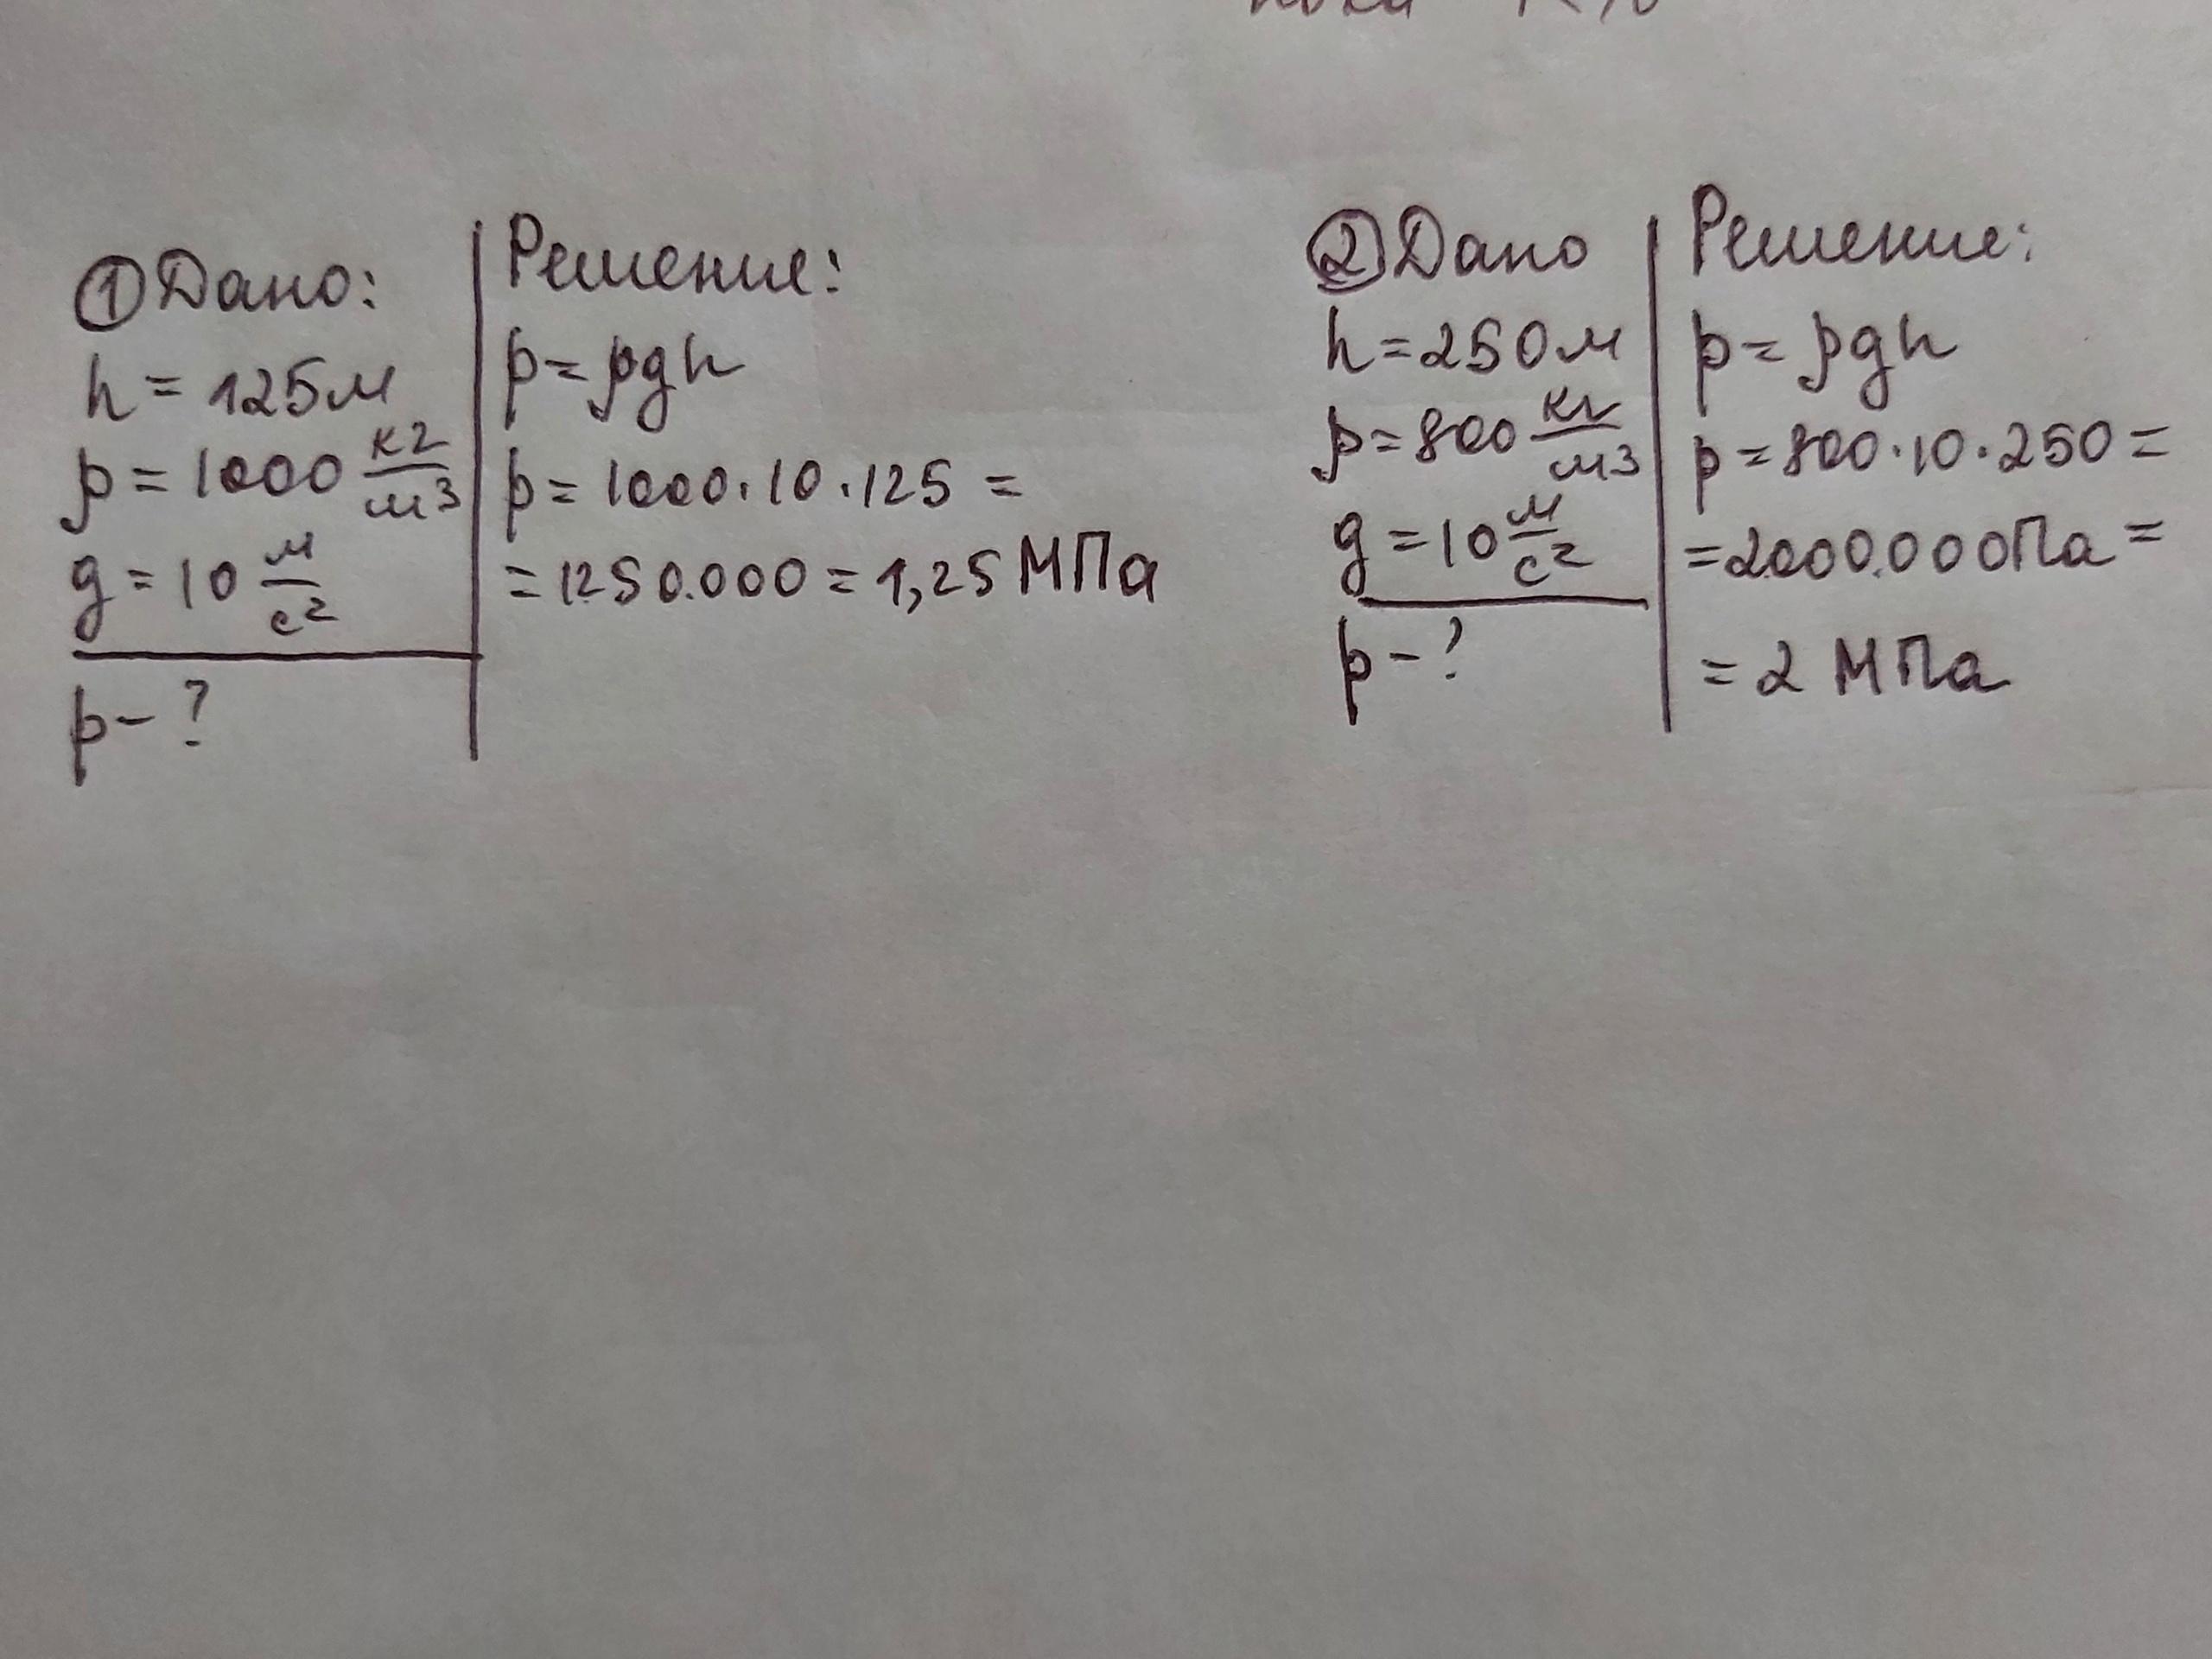 ① Дано:
h = 125м
ρ = 1000 кг/м3
g = 10 м/с2
p - ?
Решение:
p = ρgh
p = 1000·10·125 =
= 1250.000 = 1,25 МПа
② Дано
h = 250м
ρ = 800 кг/м3
g = 10 м/с2
p - ?
Решение:
p = ρgh
p = 800·10·250 =
= 2.000.000Па =
= 2 МПа